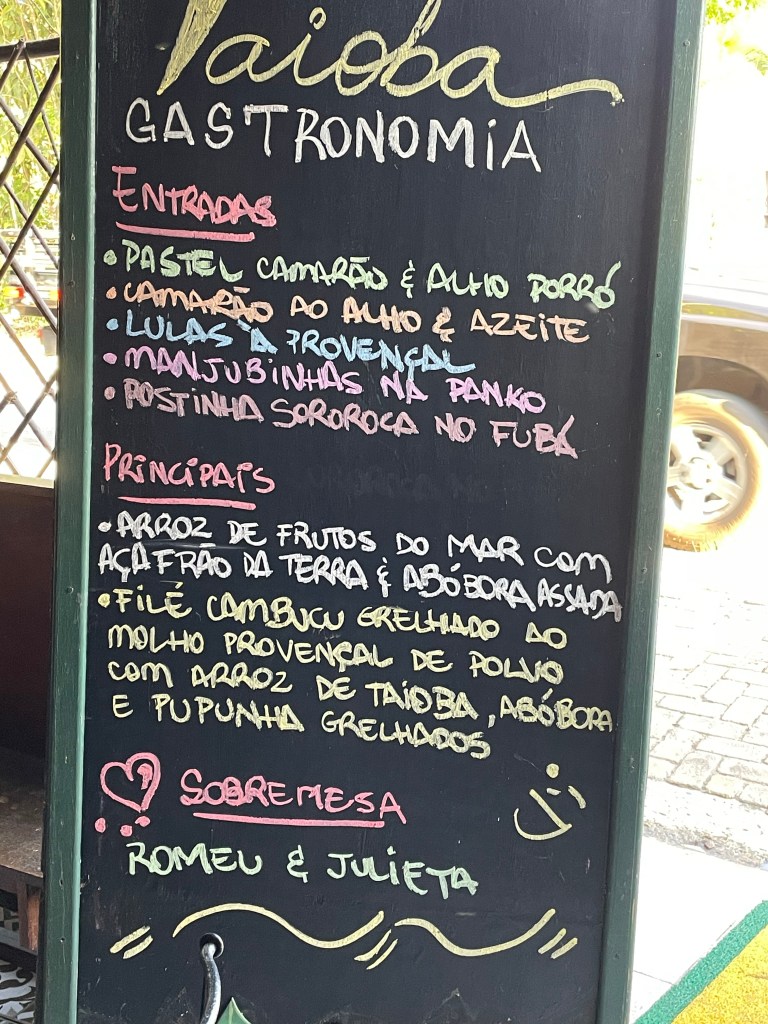 Taioba
GASTRONOMIA
ENTRADAS
• PASTEL CAMARÃO & ALHO PORRÓ
• CAMARÃO AO ALHO & AZEITE
• LULAS À PROVENÇAL
• MANJUBINHAS NA PANKO
• POSTINHA SOROROCA NO FUBÁ
PRINCIPAIS
• ARROZ DE FRUTOS DO MAR COM
AÇAFRÃO DA TERRA & ABÓBORA ASSADA
• FILÉ CAMBUCU GRELHADO AO
MOLHO PROVENÇAL DE POLVO
COM ARROZ DE TAIOBA, ABÓBORA
E PUPUNHA GRELHADOS
SOBREMESA
ROMEU & JULIETA